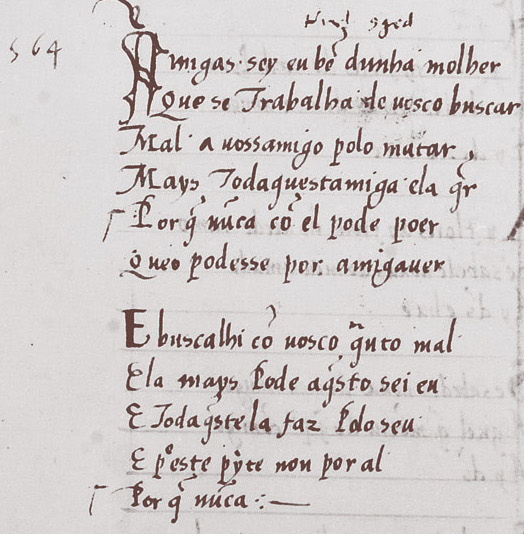 564
Amigas sey eu bẽ dunha molher
Que se Trabalha de uosco buscar
Mal a uossamigo polo matar,
Mays Todaquestamiga ela q̃r
Por q̃ nũca cõ el pode poer
Queo podesse por amigauer
E buscalhi cõ uosco q̃nto mal
Ela mays pode aq̃sto sei eu
E Todaq̃ste la faz polo seu
E por este p̃yto non por al
Por q̃ nũca :—